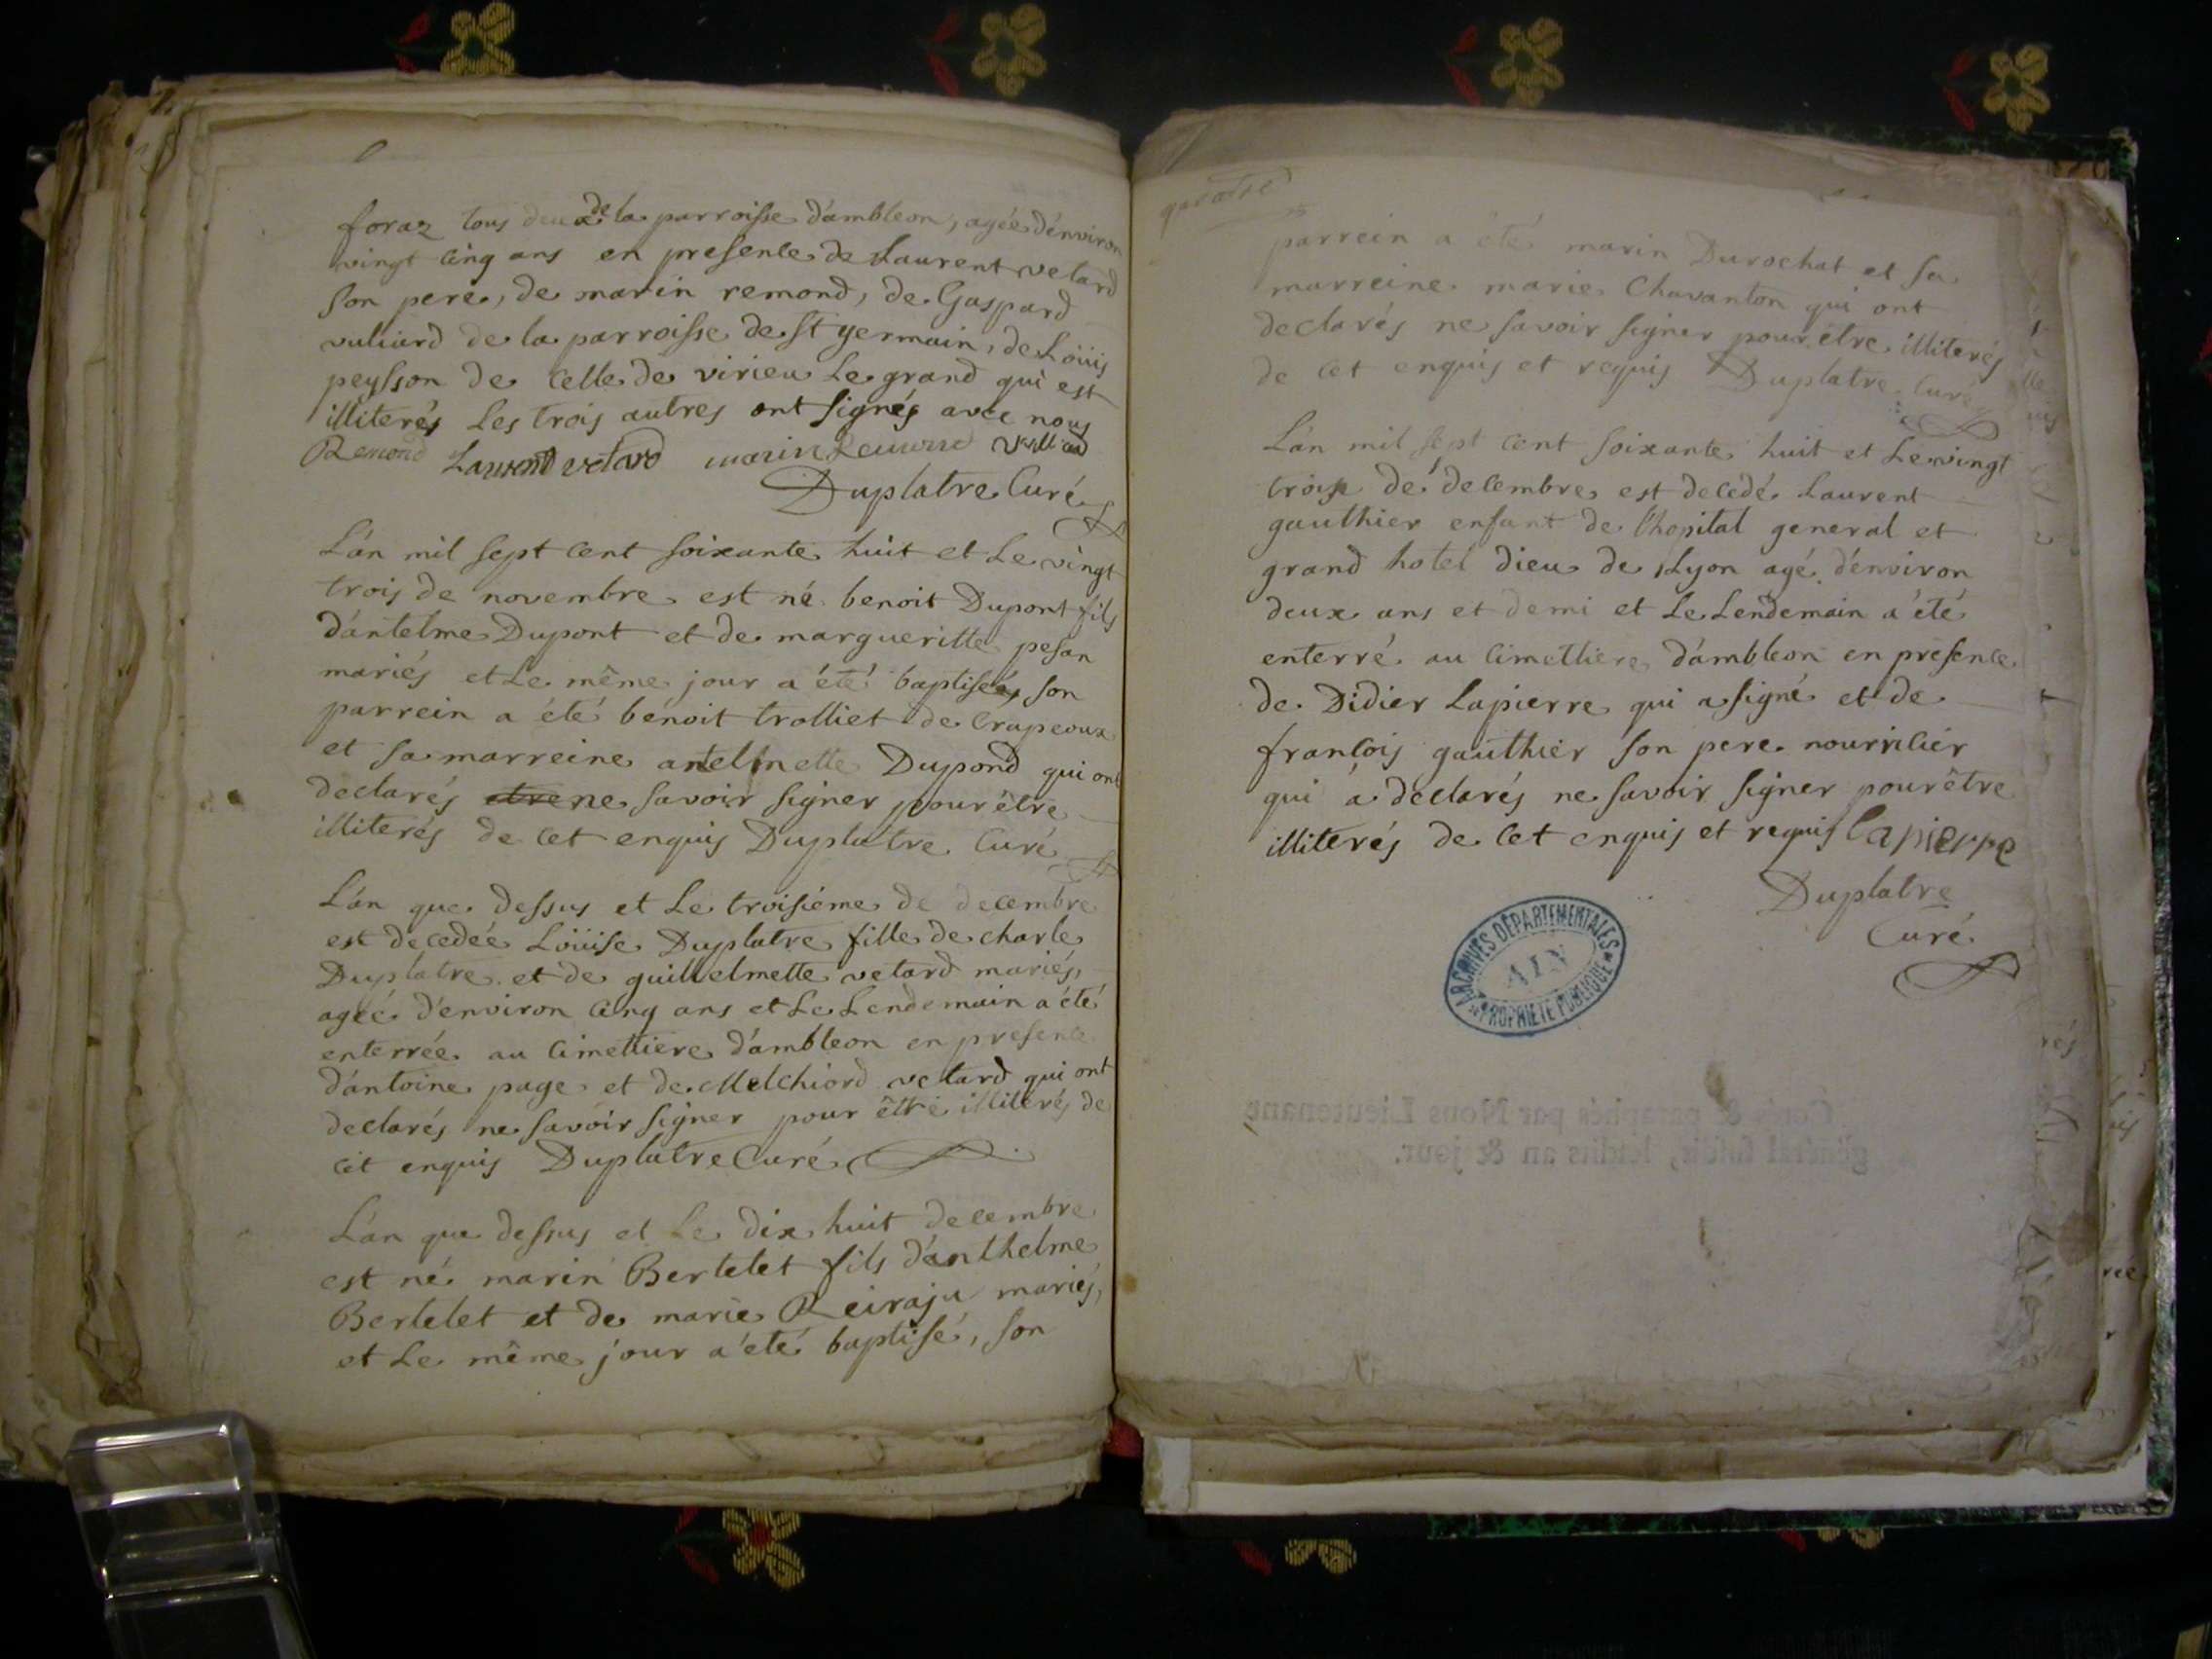 foraz tous deux de la parroisse d'ambleon, agée d'environ
vingt cinq ans en presence de Laurent vetard
son pere, de marin remond, de Gaspard
vuliard de la parroisse de st germain, de Loüis
peysson de celle de virieu Le grand qui est
illiterés Les trois autres ont signés avec nous
Remond Laurent vetard marin Remond Vulliard
Duplatre Curé
L'an mil sept cent soixante huit et Le vingt
trois de novembre est né benoit Dupont fils
d'antelme Dupont et de margueritte pesan
mariés et Le même jour a été baptiseé, son
parrein a été benoit trolliet de Crapeoux
et sa marreine antelmette Dupond qui ont
declarés etre ne savoir signer pour être
illiterés de cet enquis Duplatre Curé
L'an que dessus et Le troisiéme de decembre
est decedeé Loüise Duplatre fille de charle
Duplatre et de guillelmette vetard mariés,
ageé d'environ cinq ans et Le Lendemain a été
enterrée au cimettiere d'ambleon en presence
d'antoine page et de Melchiord vetard qui ont
declarés ne savoir signer pour être illiterés de
cet enquis Duplatre Curé
L'an que dessus et Le dix huit decembre
est né marin Bertelet fils d'anthelme
Bertelet et de marie Reiraju mariés,
et Le même jour a été baptisé, son
parrein a été marin Durochat et sa
marreine marie Chavanton qui ont
declarés ne savoir signer pour être illiterés
de cet enquis et requis Duplatre Curé
L'an mil sept cent soixante huit et Le vingt
trois de decembre est decedé Laurent
gauthier enfant de l'hopital general et
grand hotel dieu de Lyon agé d'environ
deux ans et demi et Le Lendemain a été
enterré au cimettiere d'ambleon en presence
de Didier Lapierre qui a signé et de
françois gauthier son pere nourricier
qui a declarés ne savoir signer pour être
illiterés de cet enquis et requis lapierre
Duplatre
Curé
ARCHIVES DÉPARTEMENTALES
AIN
PROPRIÉTÉ PUBLIQUE
Coté & paraphés par Nous Lieutenant
général susdit, lesdits an & jour.